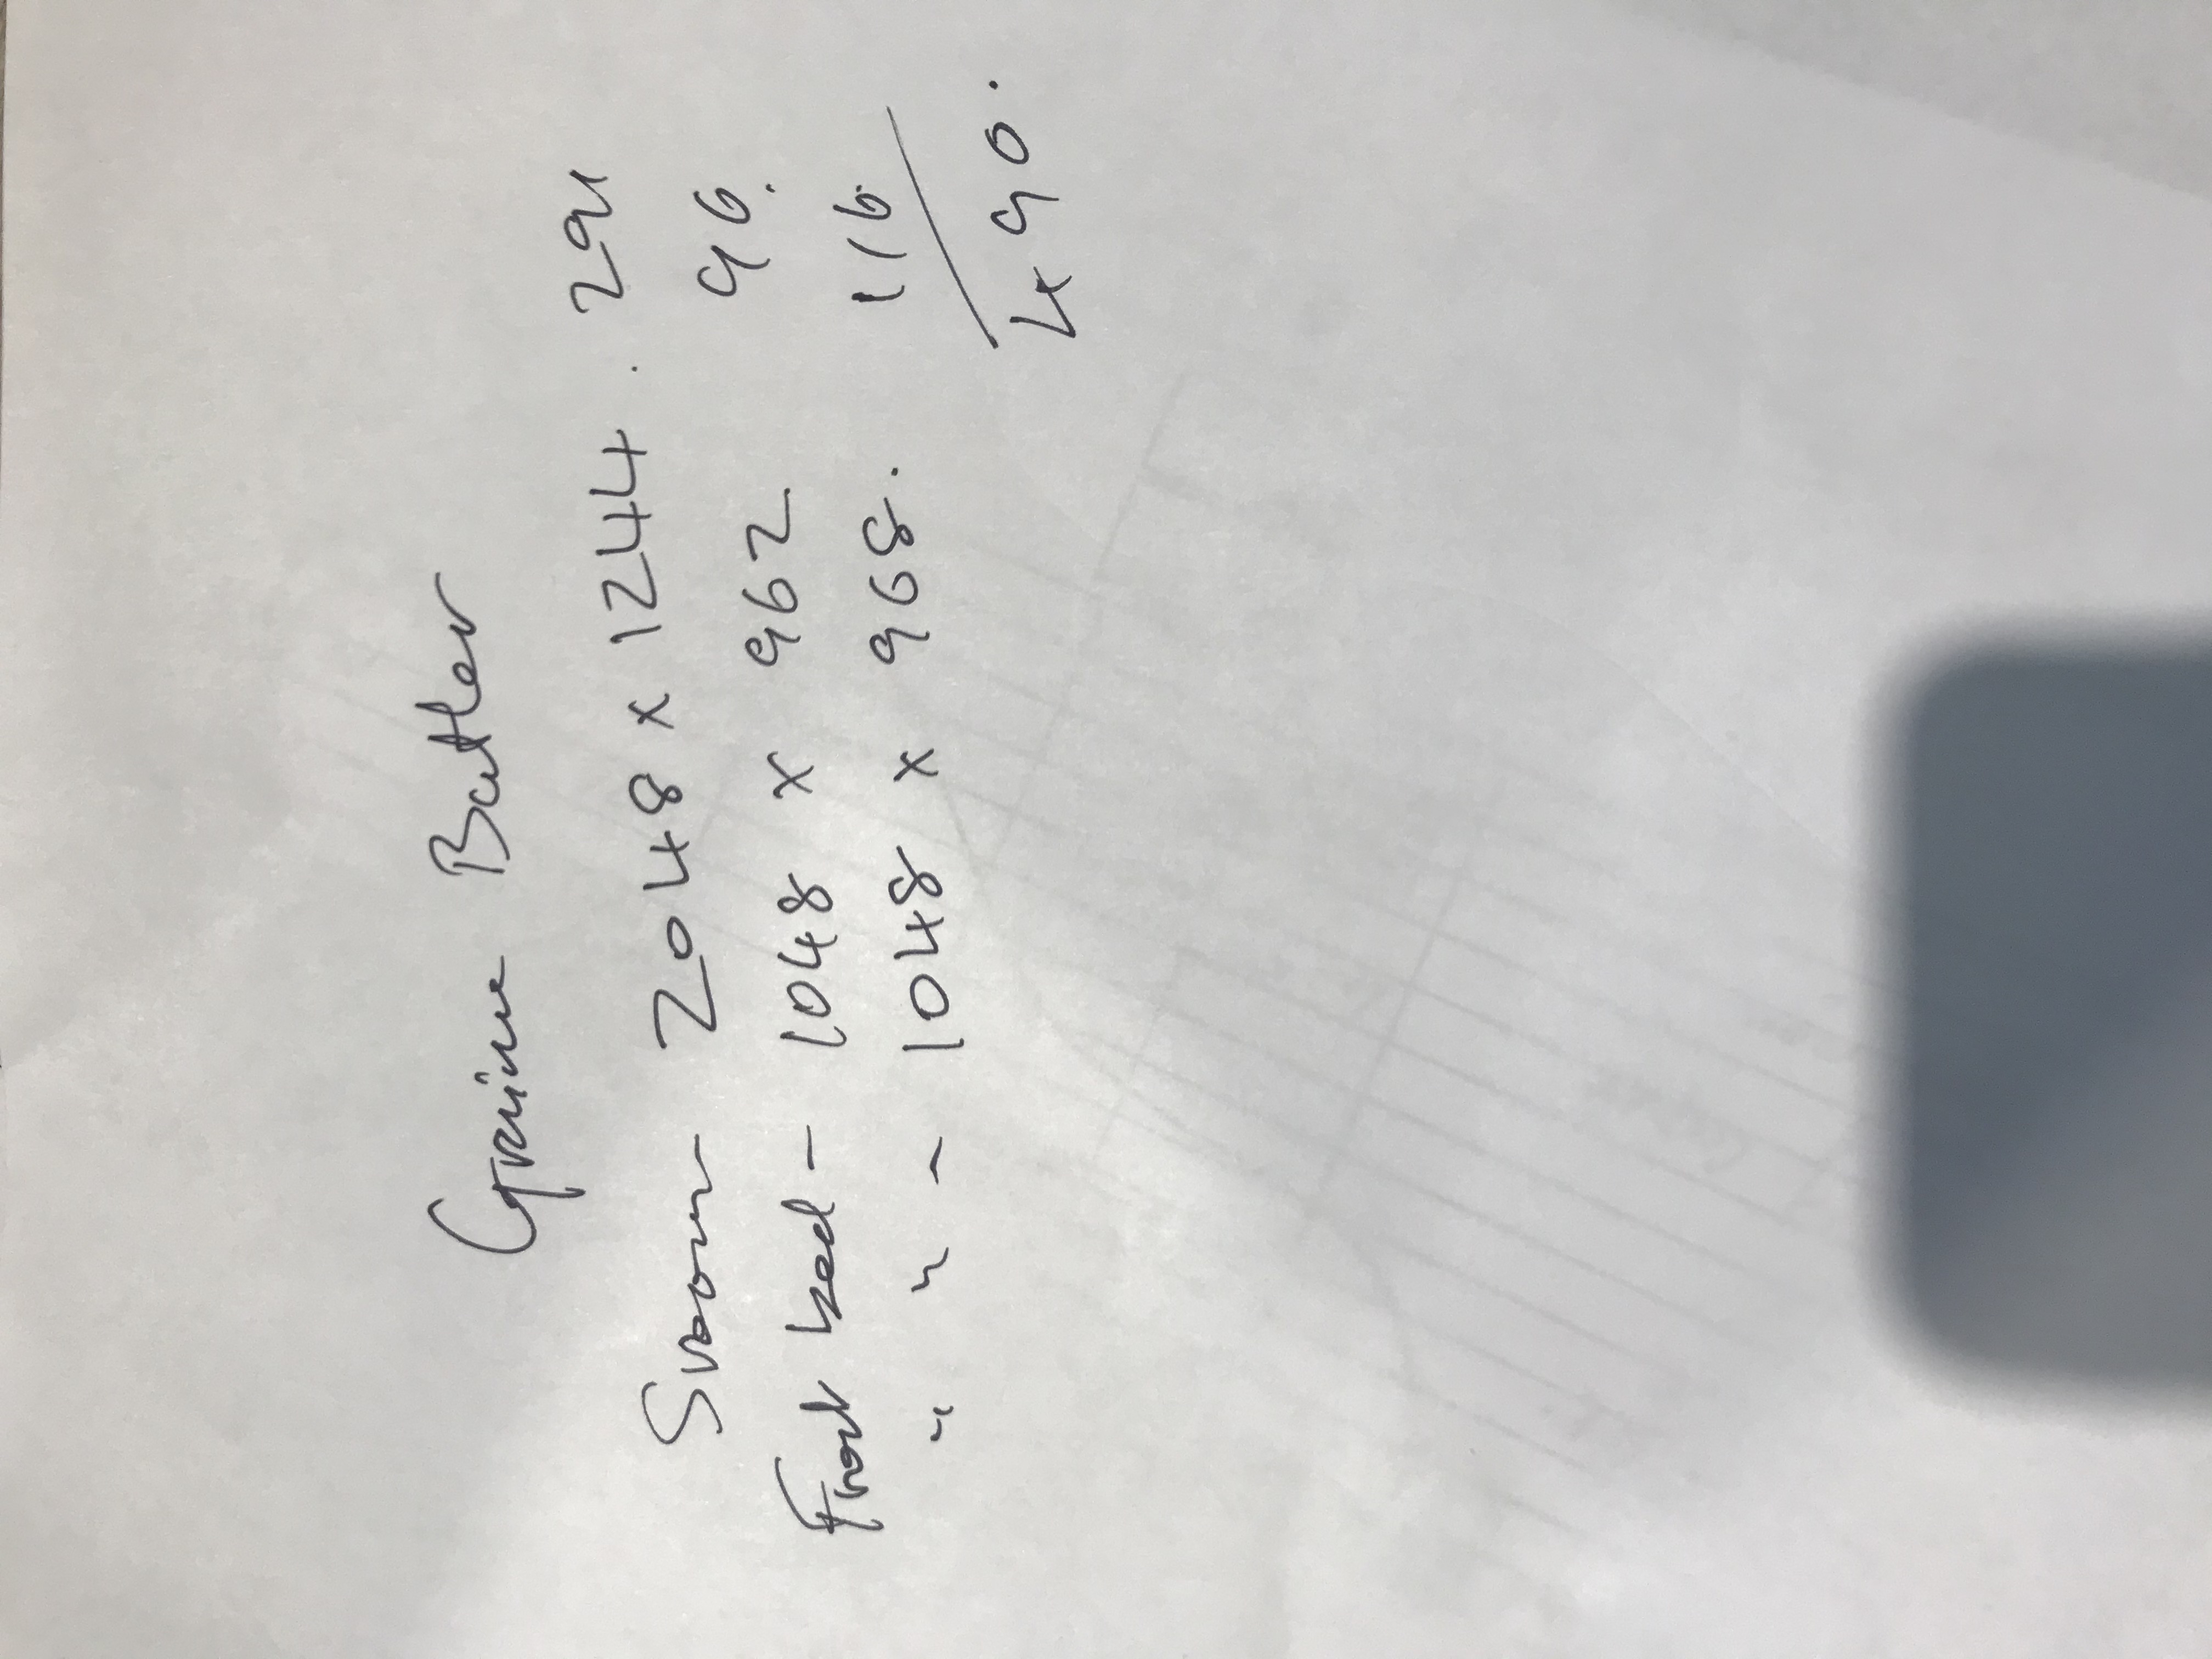 Grainne Butler
Svroom 2048 x 1244. 291
Front bed - 1048 x 962 96.
" " - 1048 x 968. 116
490.